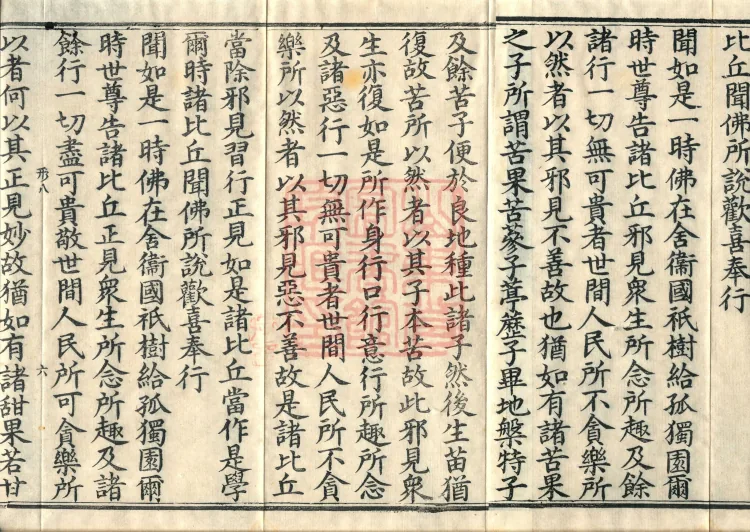 比丘聞佛所說歡喜奉行
聞如是一時佛在舍衞國祇樹給孤獨園爾
時世尊告諸比丘邪見衆生所念所趣及餘
諸行一切無可貴者世間人民所不貪樂所
以然者以其邪見不善故也猶如有諸苦果
之子所謂苦果苦蔘子葶藶子畢地槃特子
及餘苦子便於良地種此諸子然後生苗猶
復故苦所以然者以其子本苦故此邪見衆
生亦復如是所作身行口行意行所趣所念
及諸惡行一切無可貴者世間人民所不貪
樂所以然者以其邪見惡不善故是諸比丘
當除邪見習行正見如是諸比丘當作是學
爾時諸比丘聞佛所說歡喜奉行
聞如是一時佛在舍衞國祇樹給孤獨園爾
時世尊告諸比丘正見衆生所念所趣及諸
餘行一切盡可貴敬世間人民所可貪樂所
形八 六
以者何以其正見妙故猶如有諸甜果若甘